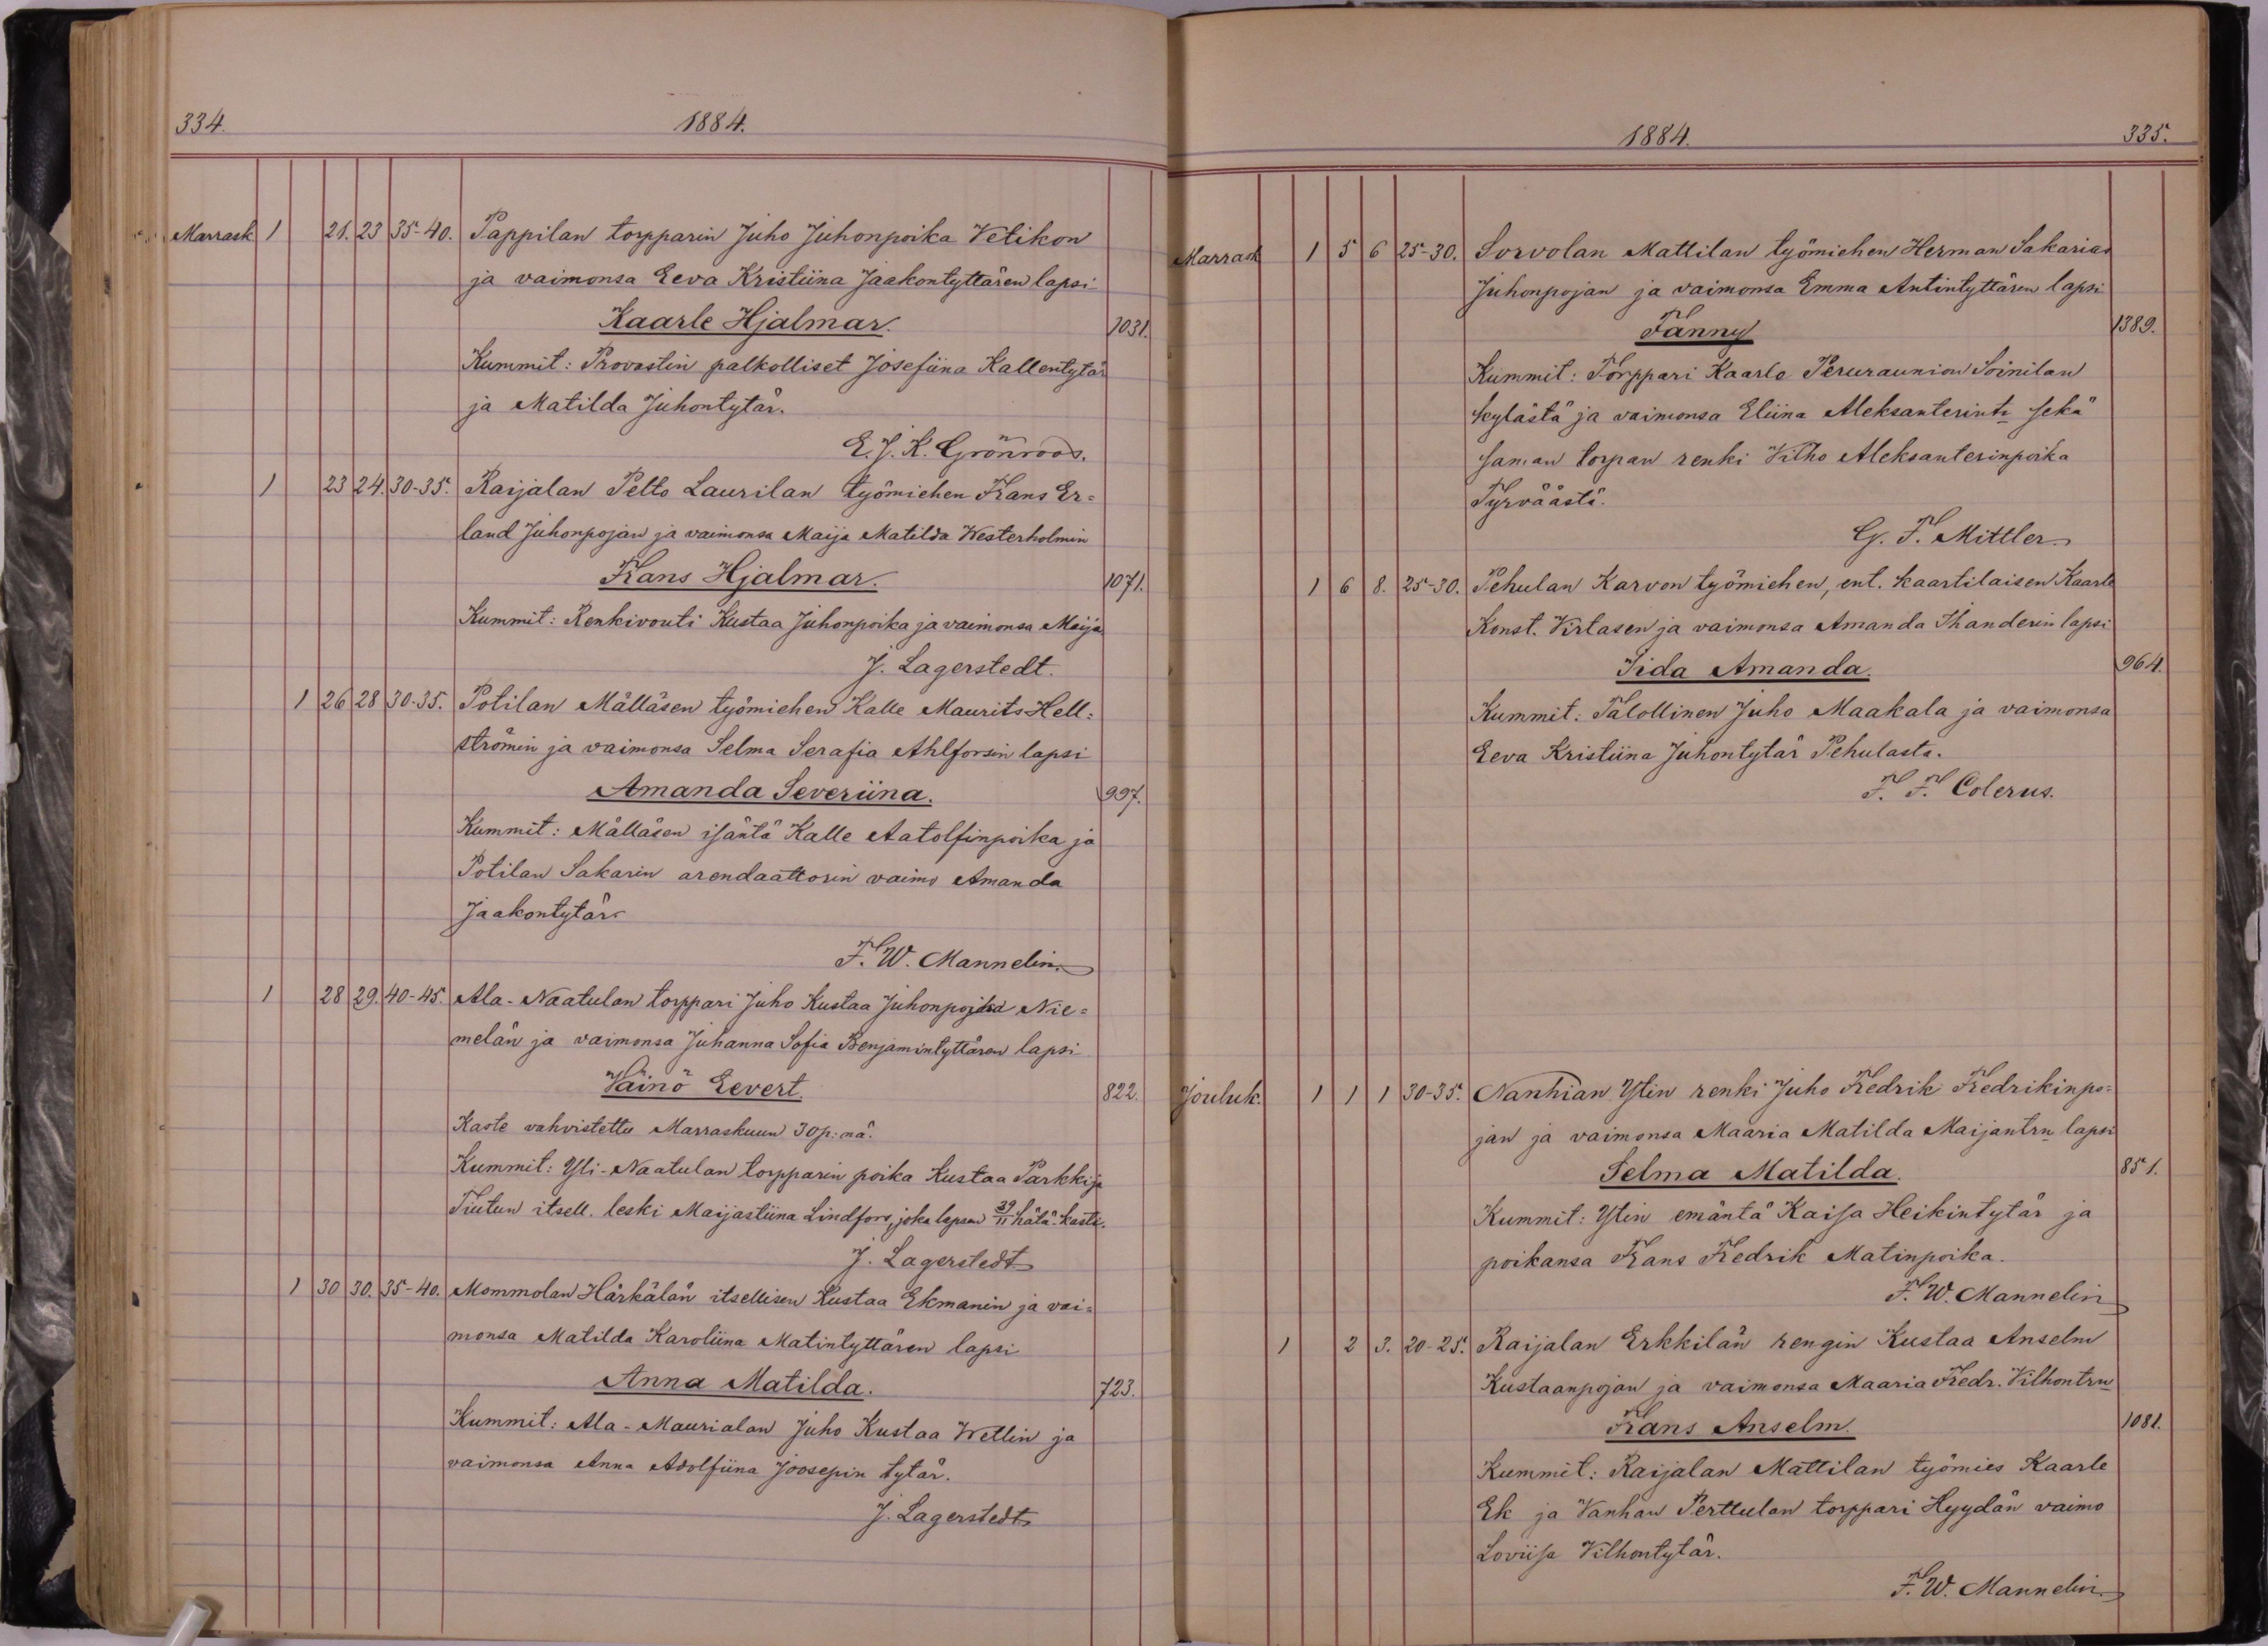 334.
1884.
Marrask 1 21. 23 35-40. Pappilan torpparin Juho Juhonpoika Vetikon
ja vaimonsa Eeva Kristiina Jaakontyttären lapsi
Kaarle Hjalmar. 1031.
Kummit: Provastin palkolliset Josefiina Kallentytär
ja Matilda Juhontytär.
E. J. K. Grönroos.
1 23 24. 30-35. Raijalan Pelto Laurilan työmiehen Frans Er=
land Juhonpojan ja vaimonsa Maija Matilda Westerholmin
Frans Hjalmar. 1071.
Kummit: Renkivouti Kustaa Juhonpoika ja vaimonsa Maija
J. Lagerstedt.
1 26 28 30-35. Potilan Mälläsen työmiehen Kalle Maurits Hell=
strömin ja vaimonsa Selma Serafia Ahlforsin lapsi
Amanda Severiina. 997.
Kummit: Mälläsen isäntä Kalle Aatolfinpoika ja
Potilan Sakarin arendaattorin vaimo Amanda
Jaakontytär.
F. W. Mannelin.
1 28 29. 40-45. Ala-Naatulan torppari Juho Kustaa Juhonpojan Nie=
melän ja vaimonsa Juhanna Sofia Benjamintyttären lapsi
Väinö Eevert. 822.
Kaste vahvistettu Marraskuun 30 p: nä.
Kummit: Yli-Naatulan torpparin poika Kustaa Parkki ja
Tiutun itsell. leski Maijastiina Lindfors, joka lapsen 29/11 hätä-kasti.
J. Lagerstedt
1 30 30. 35-40. Mommolan Härkälän itsellisen Kustaa Ekmanin ja vai=
monsa Matilda Karoliina Matintyttären lapsi
Anna Matilda. 723.
Kummit: Ala-Maurialan Juho Kustaa Wetlin ja
vaimonsa Anna Adolfiina Joosepin tytär.
J. Lagerstedt
1884.
335.
Marrask 1 5 6 25-30. Sorvolan Mattilan työmiehen Herman Sakarias
Juhonpojan ja vaimonsa Emma Antintyttären lapsi
Fanny 1389.
Kummit: Torppari Kaarle Peruraunion Soinilan
kylästä ja vaimonsa Eliina Aleksanterintr sekä
saman torpan renki Vilho Aleksanterinpoika
Tyrväästä.
G. F. Mittler
1 6 8. 25-30. Pehulan Karvon työmiehen, ent. kaartilaisen Kaarle
Konst. Virtasen ja vaimonsa Amanda Thanderin lapsi
Iida Amanda. 964.
Kummit: Talollinen Juho Maakala ja vaimonsa
Eeva Kristiina Juhontytär Pehulasta.
F. F. Colerus.
Jouluk. 1 1 1 30-35. Nanhian Ytin renki Juho Fredrik Fredrikinpo=
jan ja vaimonsa Maaria Matilda Maijantrn lapsi
Selma Matilda. 851.
Kummit: Ytin emäntä Kaisa Heikintytär ja
poikansa Frans Fredrik Matinpoika.
F. W. Mannelin
1 2 3. 20-25. Raijalan Erkkilän rengin Kustaa Anselm
Kustaanpojan ja vaimonsa Maaria Fredr. Vilhontrn
Frans Anselm. 1081.
Kummit: Raijalan Mattilan työmies Kaarle
Ek ja Vanhan Perttulan torppari Hyydän vaimo
Loviisa Vilhontytär.
F. W. Mannelin